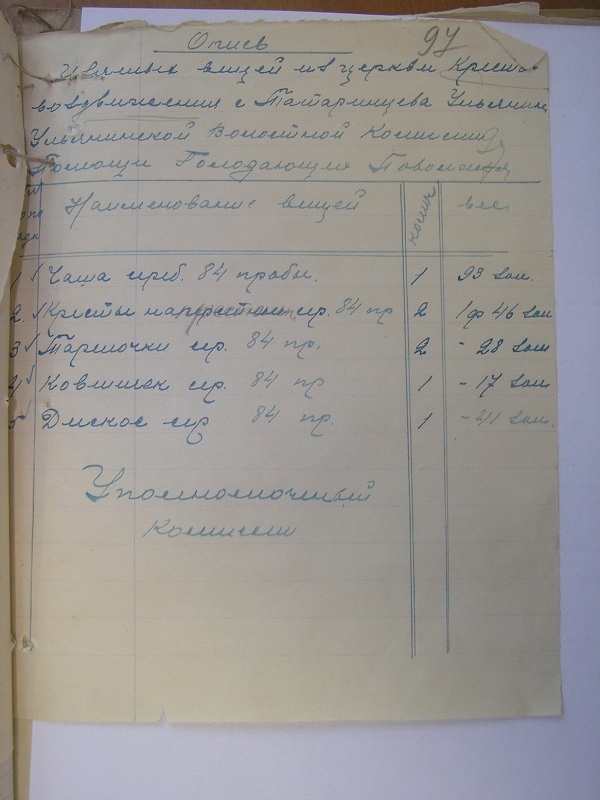 97
Опись
Изъятых вещей из церкви Кресто-
воздвижения с Татаринцева Ульянин
Ульянинской Волостной Комиссии
Помощи Голодающих Поволжья
Наименование вещей колич вес
1 Чаша сереб. 84 пробы. 1 93 зол.
2. Кресты напрестольн. сер. 84 пр 2 1ф 46 зол
3 Тарелочки сер. 84 пр. 2 - 28 зол
4 Ковшичек сер. 84 пр 1 - 17 зол
5 Дискос сер 84 пр. 1 - 41 зол.
Уполномоченный
Комиссии